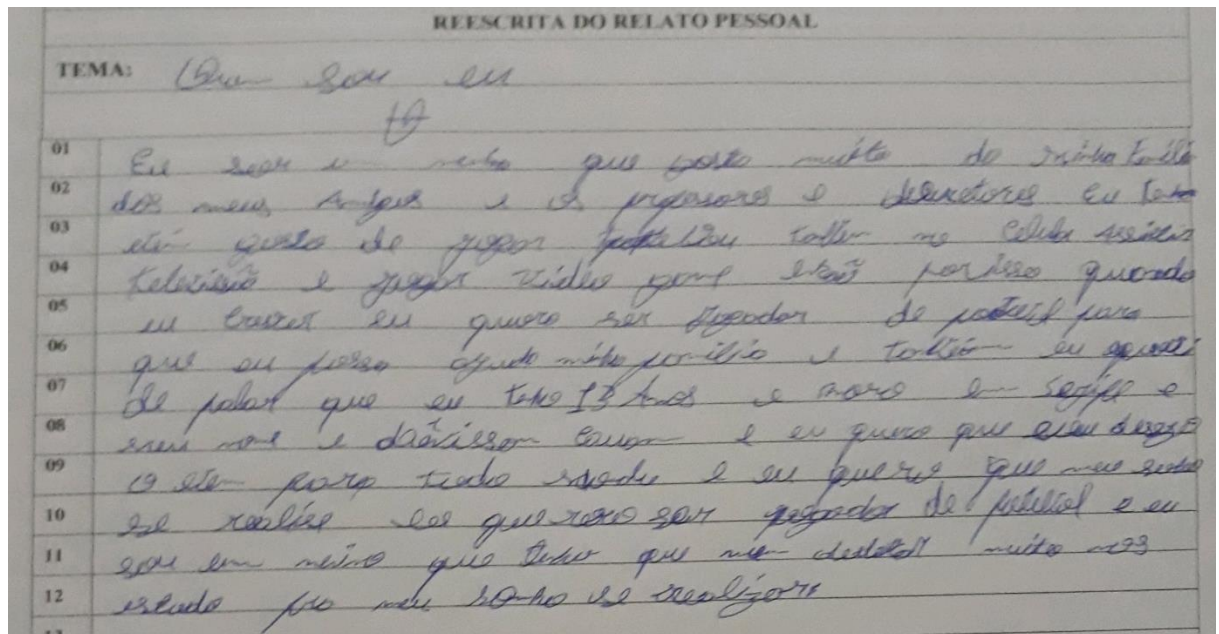 REESCRITA DO RELATO PESSOAL
TEMA: Quem sou eu
01 Eu sou um menino que gosto muito da minha família
02 dos meus Amigos e os professores e diretores Eu tenho
03 gosto de jogar futebou no celular assistir
04 televisão e jogar video game então por isso quando
05 eu crescer eu quero ser jogador de futebol para
06 que eu possa ajuda minha família e também eu
07 de falar que eu tenho 13 Anos e moro em Sergipe e
08 meu nome e e eu quero que
09 para todo mundo e eu quero que meu sonho
10 se realise que ser jogador de futebol e eu
11 sou um menino que que muito nos
12 estudo pro meu sonho se realizar